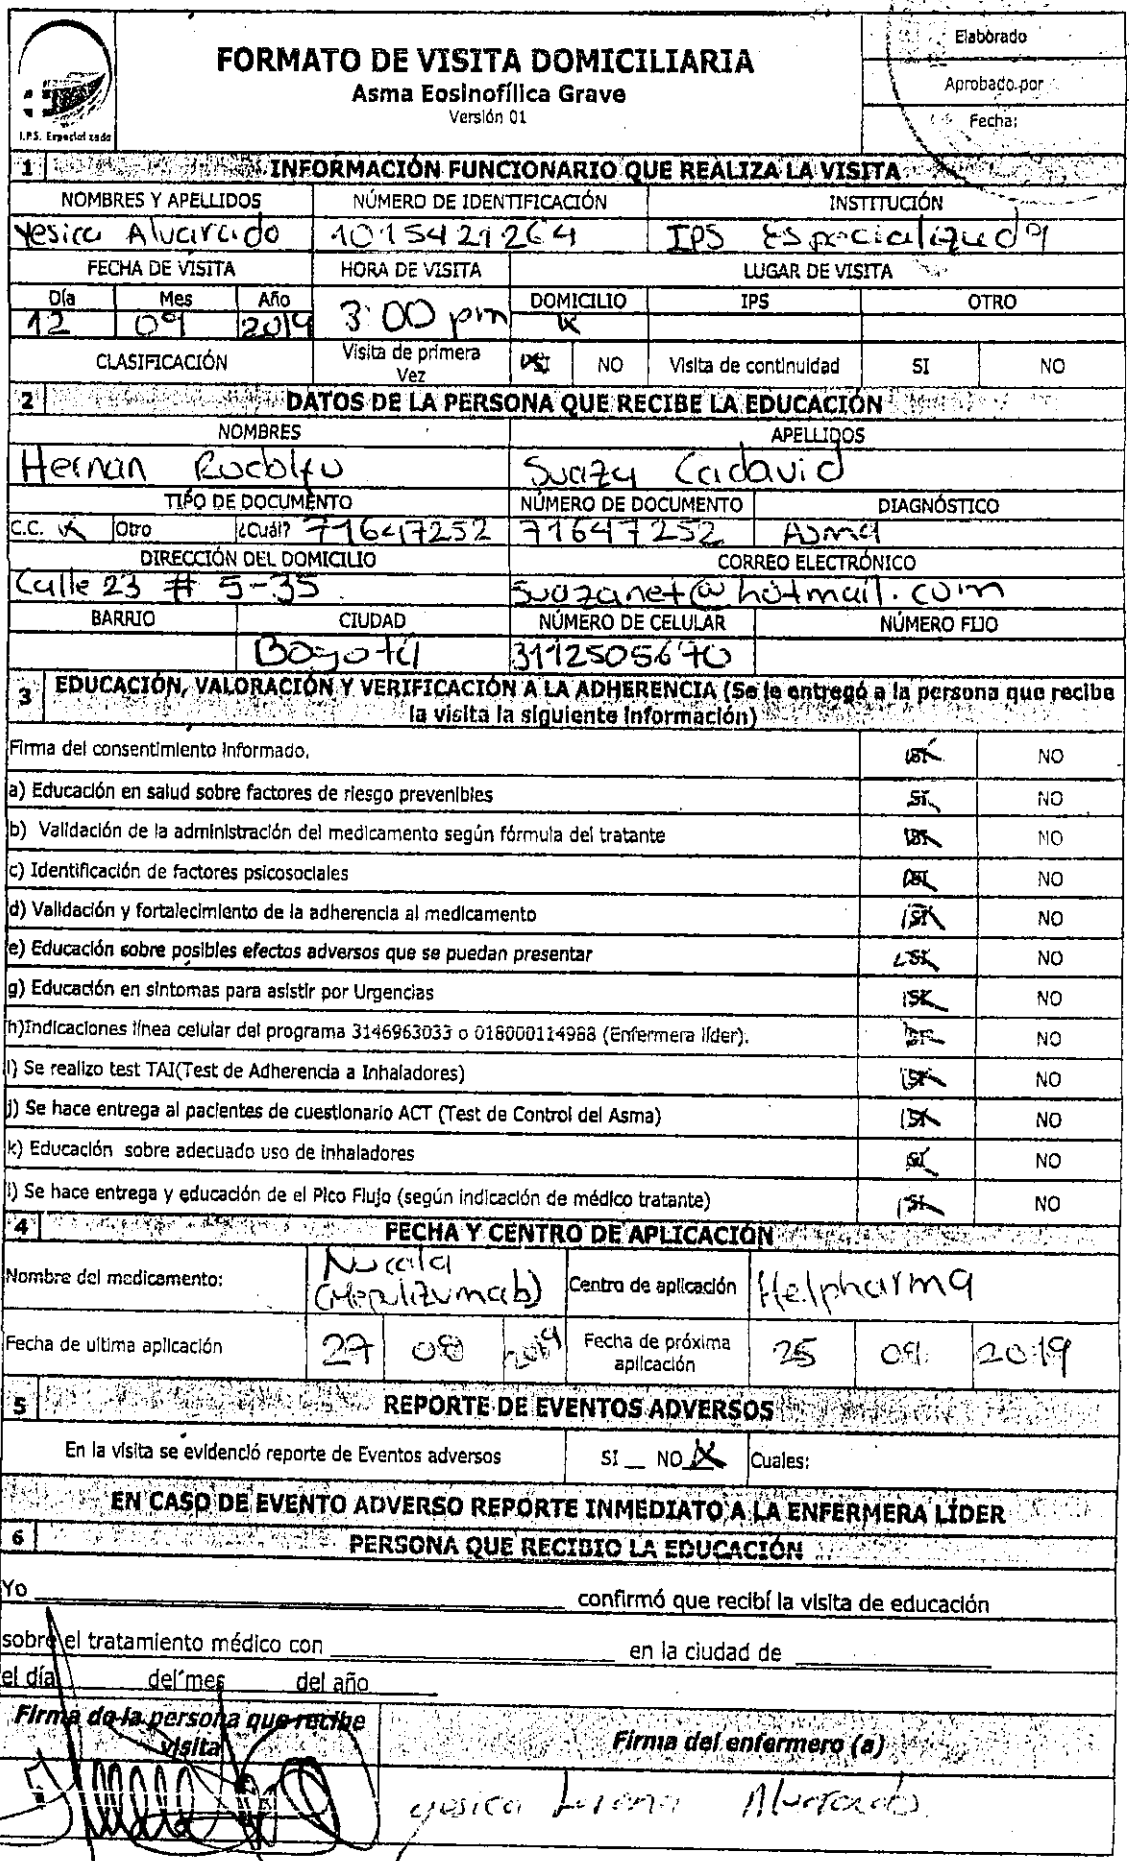 I.P.S. Especializada
FORMATO DE VISITA DOMICILIARIA
Asma Eosinofílica Grave
Versión 01
Elaborado
Aprobado por
Fecha:
1 INFORMACIÓN FUNCIONARIO QUE REALIZA LA VISITA
NOMBRES Y APELLIDOS NÚMERO DE IDENTIFICACIÓN INSTITUCIÓN
Yesica Alvarado 1015421264 IPS Especializada
FECHA DE VISITA HORA DE VISITA LUGAR DE VISITA
Día Mes Año 3:00 pm DOMICILIO IPS OTRO
12 09 2019 X
CLASIFICACIÓN Visita de primera Vez SI NO Visita de continuidad SI NO
2 DATOS DE LA PERSONA QUE RECIBE LA EDUCACIÓN
NOMBRES APELLIDOS
Hernan Rodolfo Suaza Cadavid
TIPO DE DOCUMENTO NÚMERO DE DOCUMENTO DIAGNÓSTICO
C.C. X Otro ¿Cuál? 71647252 71647252 Asma
DIRECCIÓN DEL DOMICILIO CORREO ELECTRÓNICO
Calle 23 # 5-35 suazanet@hotmail.com
BARRIO CIUDAD NÚMERO DE CELULAR NÚMERO FIJO
Bogotá 3112505670
3 EDUCACIÓN, VALORACIÓN Y VERIFICACIÓN A LA ADHERENCIA (Se le entregó a la persona que recibe
la visita la siguiente información)
Firma del consentimiento informado. SI NO
a) Educación en salud sobre factores de riesgo prevenibles SI NO
b) Validación de la administración del medicamento según fórmula del tratante SI NO
c) Identificación de factores psicosociales SI NO
d) Validación y fortalecimiento de la adherencia al medicamento SI NO
e) Educación sobre posibles efectos adversos que se puedan presentar SI NO
g) Educación en sintomas para asistir por Urgencias SI NO
h)Indicaciones línea celular del programa 3146963033 o 018000114988 (Enfermera líder). SI NO
i) Se realizo test TAI(Test de Adherencia a Inhaladores) SI NO
j) Se hace entrega al pacientes de cuestionario ACT (Test de Control del Asma) SI NO
k) Educación sobre adecuado uso de inhaladores SI NO
l) Se hace entrega y educación de el Pico Flujo (según indicación de médico tratante) SI NO
4 FECHA Y CENTRO DE APLICACIÓN
Nombre del medicamento: Nucala (Mepolizumab) Centro de aplicación Helpharma
Fecha de ultima aplicación 27 08 2019 Fecha de próxima aplicación 25 09 2019
5 REPORTE DE EVENTOS ADVERSOS
En la visita se evidenció reporte de Eventos adversos SI __ NO X Cuales:
EN CASO DE EVENTO ADVERSO REPORTE INMEDIATO A LA ENFERMERA LÍDER
6 PERSONA QUE RECIBIO LA EDUCACIÓN
Yo ____ confirmó que recibí la visita de educación
sobre el tratamiento médico con ____ en la ciudad de ____
el día ____ del mes ____ del año ____
Firma de la persona que recibe visita Firma del enfermero (a)
Yesica Lorena Alvarado